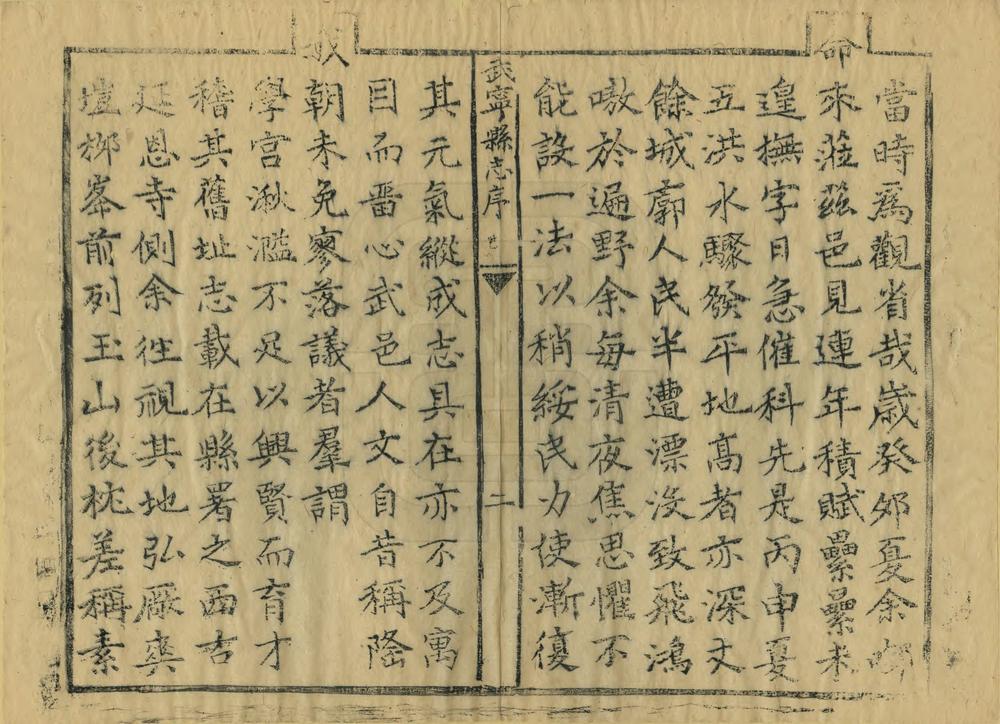 當時爲觀省哉歲癸夘夏余
命來蒞茲邑見連年積賦纍纍未
遑撫字日急催科先是丙申夏
五洪水驟發平地高者亦深丈
餘城廓人民半遭漂沒致飛鴻
嗷於遍野余每清夜焦思懼不
能設一法以稍綏民力使漸復
武寧縣志序 二
其元氣縱成志具在亦不及寓
目而畱心武邑人文自昔稱隆
我朝未免寥落議者羣謂
學宫湫濫不足以興賢而育才
稽其舊址志載在縣署之西古
延恩寺側余徃視其地弘厰爽
塏柳峯前列玉山後枕差稱素